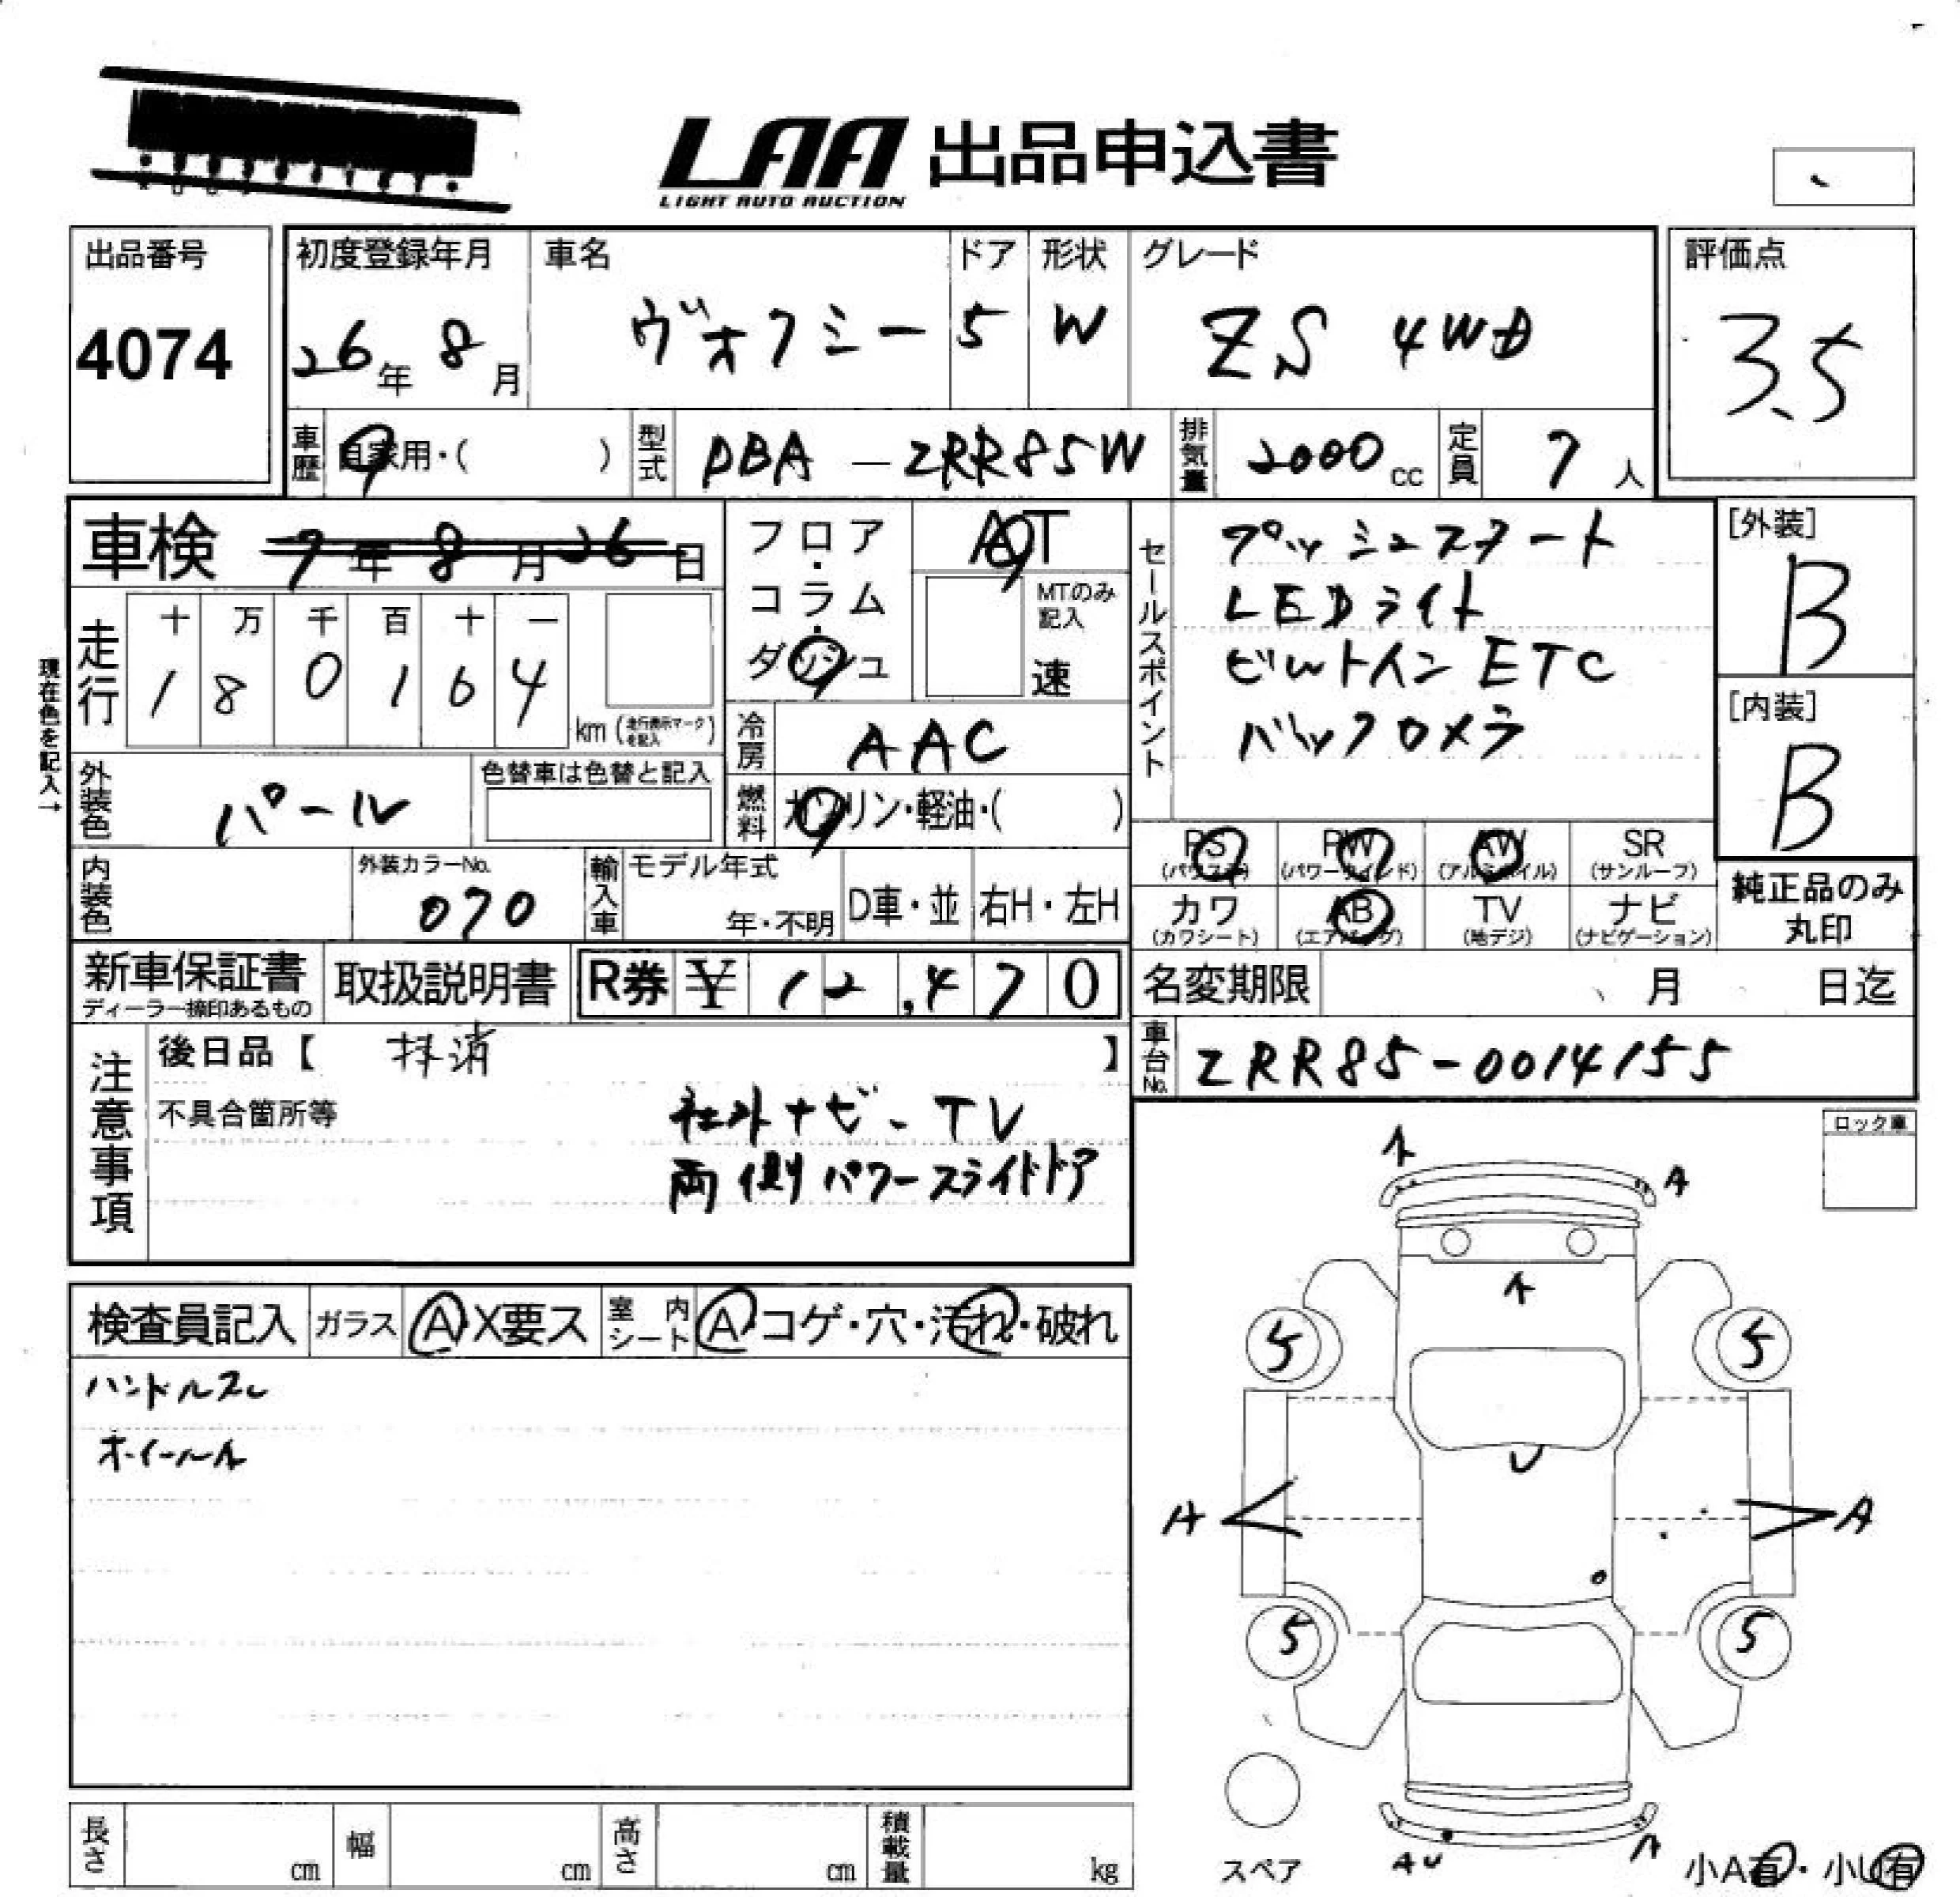 LAA 出品申込書
LIGHT AUTO AUCTION
出品番号
4074
初度登録年月
26年 8月
車名
ヴォクシー
ドア
5
形状
W
グレード
ZS 4WD
評価点
3.5
車歴
自家用・( )
型式
DBA-ZRR85W
排気量
2000cc
定員
7人
車検 7年8月26日
フロア・コラム・ダッシュ
AT
MTのみ記入
速
走行
十 万 千 百 十 一
1 8 0 1 6 4
km(走行表示マークを記入)
現在色を記入→
冷房
AAC
外装色
パール
色替車は色替と記入
燃料
ガソリン・軽油・( )
内装色
外装カラーNo.
070
輸入車
モデル年式
年・不明
D車・並
右H・左H
セールスポイント
プッシュスタート
LEDライト
ビルトインETC
バックカメラ
[外装]
B
[内装]
B
PS (パワステ)
PW (パワーウインド)
AW (アルミホイル)
SR (サンルーフ)
カワ (カワシート)
AB (エアバッグ)
TV (地デジ)
ナビ (ナビゲーション)
純正品のみ丸印
新車保証書
ディーラー捺印あるもの
取扱説明書
R券 ¥ 12,470
名変期限 月 日迄
注意事項
後日品【 抹消 】
不具合箇所等
社外ナビ-TV
両側パワースライドドア
車台No.
ZRR85-0014155
ロック車
検査員記入
ガラス A X要ス
室内シート A コゲ・穴・汚れ・破れ
ハンドルスレ
ホイールA
A
A
A
5
5
U
A
A
5
5
スペア
AU
A
小A有・小U有
長さ cm
幅 cm
高さ cm
積載量 kg